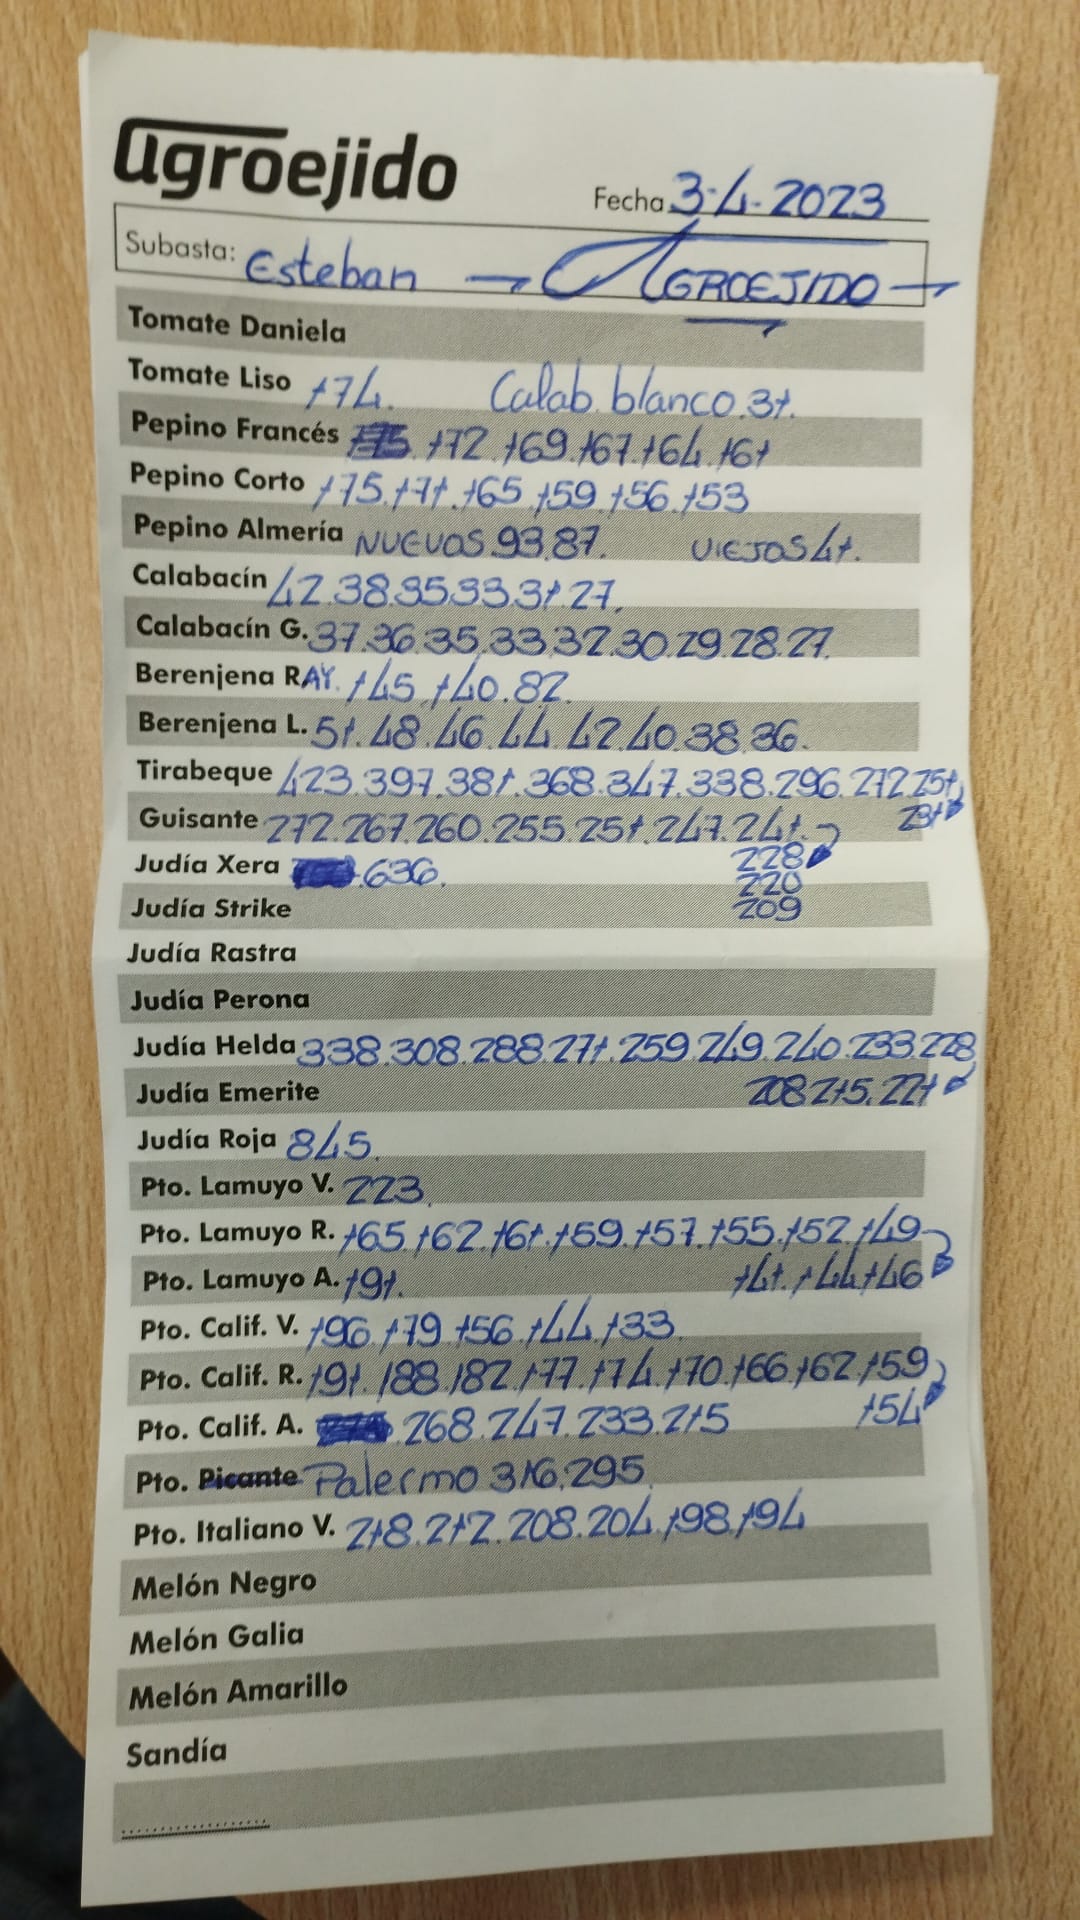 agroejido
Fecha 3-4-2023
Subasta: Esteban → AGROEJIDO →
Tomate Daniela
Tomate Liso 174. Calab. blanco. 31.
Pepino Francés 172. 169. 167. 164. 161
Pepino Corto 175. 171. 165. 159. 156. 153
Pepino Almería NUEVOS. 93. 87. VIEJOS 41.
Calabacín 42. 38. 35. 33. 31. 27.
Calabacín G. 37. 36. 35. 33. 32. 30. 29. 28. 27.
Berenjena RAY. 145. 140. 82.
Berenjena L. 51. 48. 46. 44. 42. 40. 38. 36.
Tirabeque 423. 397. 381. 368. 347. 338. 296. 272. 251.
231
Guisante 272. 267. 260. 255. 251. 247. 241.
228
220
209
Judía Xera 636.
Judía Strike
Judía Rastra
Judía Perona
Judía Helda 338. 308. 288. 271. 259. 249. 240. 233. 228
208. 215. 221
Judía Emerite
Judía Roja 845.
Pto. Lamuyo V. 223.
Pto. Lamuyo R. 165. 162. 161. 159. 157. 155. 152. 149
141. 144. 146
Pto. Lamuyo A. 191.
Pto. Calif. V. 196. 179. 156. 144. 133
Pto. Calif. R. 191. 188. 182. 177. 174. 170. 166. 162. 159
154
Pto. Calif. A. 268. 247. 233. 215
Pto. Picante Palermo 316. 295.
Pto. Italiano V. 218. 212. 208. 204. 198. 194
Melón Negro
Melón Galia
Melón Amarillo
Sandía